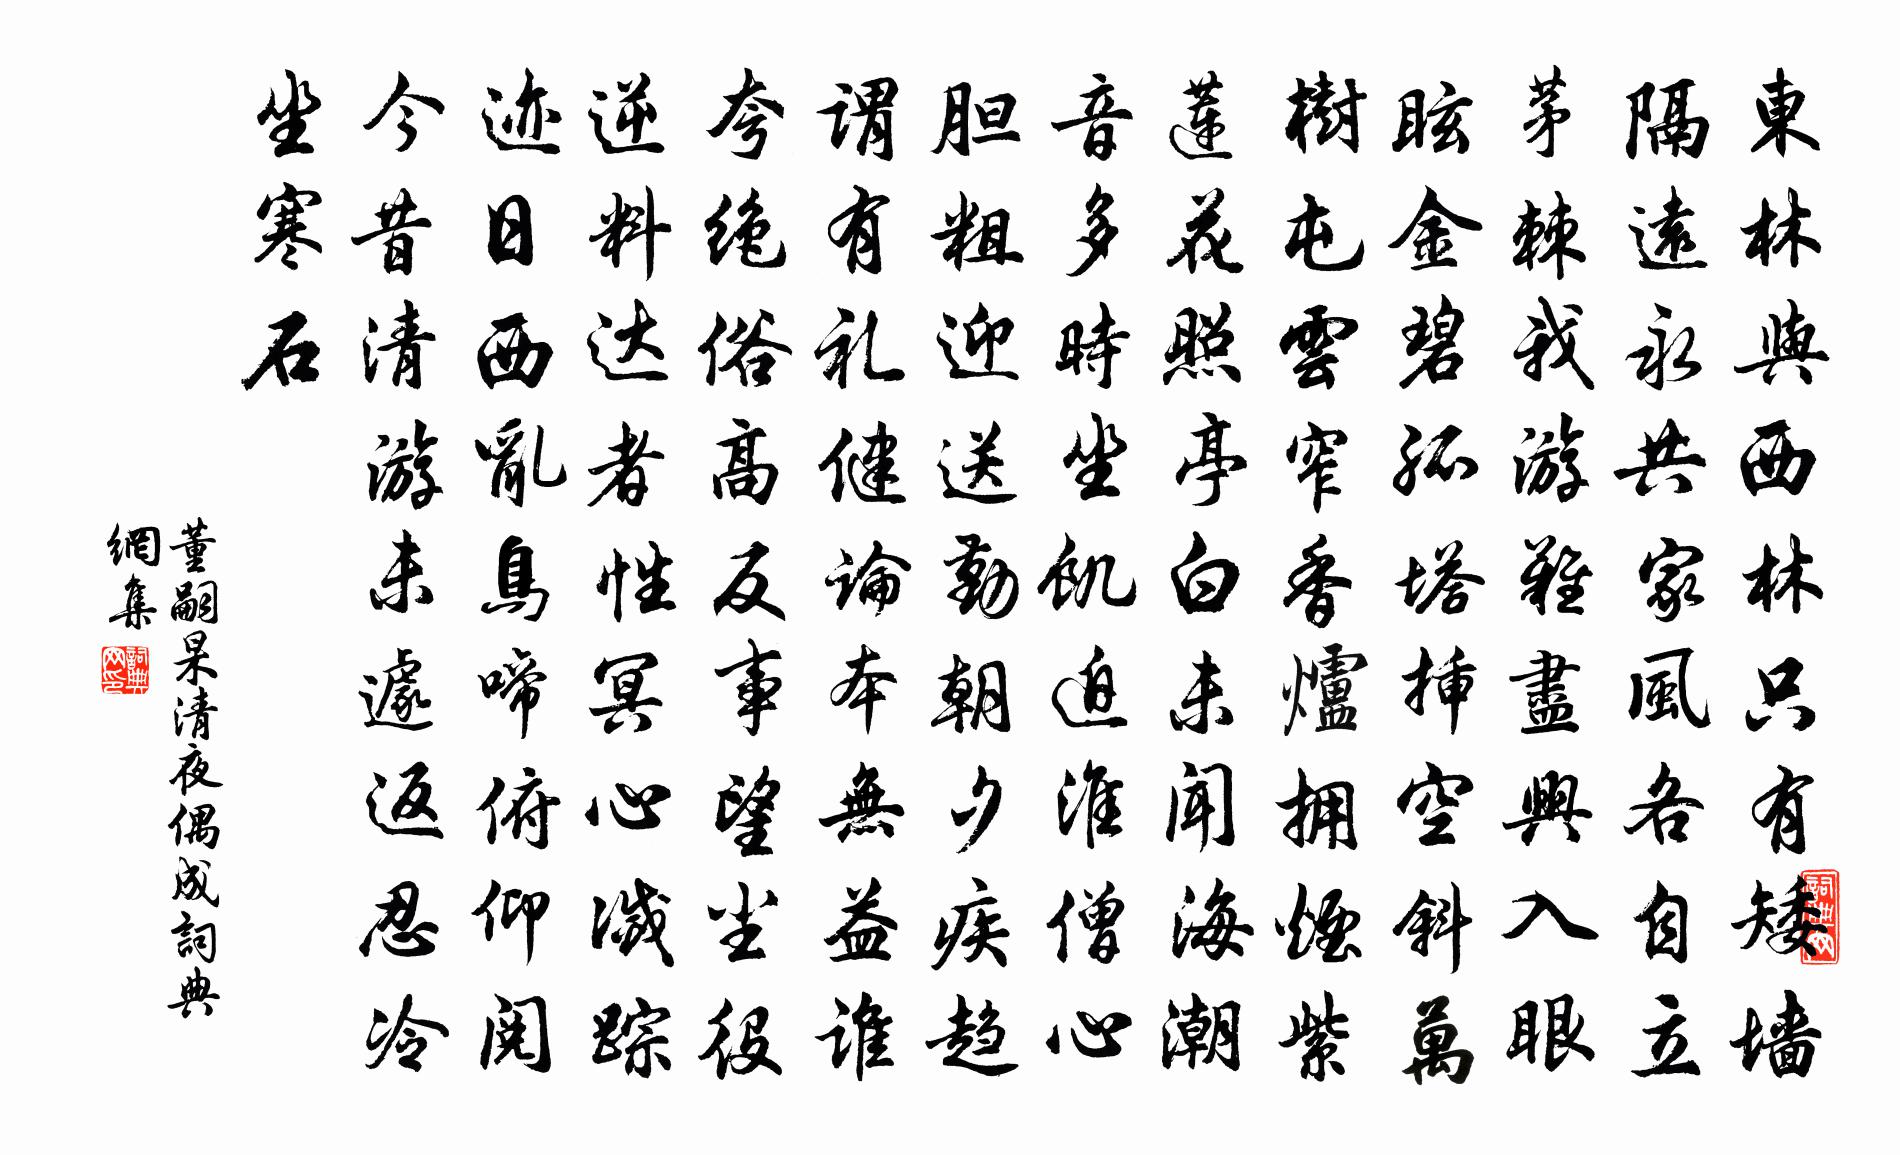 東林與西林只有矮墻
隔遠永共家風各自立
茅棘我游難盡興入眼
眩金碧孤塔揷空斜萬
樹屯雲窄香爐拥煙紫
蓮花照亭白未聞海潮
音多時坐飢迫淮僧心
胆粗迎送勤朝夕疾趋
谓有礼健论本無益谁
夸绝俗高反事望尘役
逆料达者性冥心减踪
迹日西亂鳥啼俯仰阅
今昔清游未遽返忍冷
坐寒石
董嗣杲清夜偶成詞典
網集
詞典